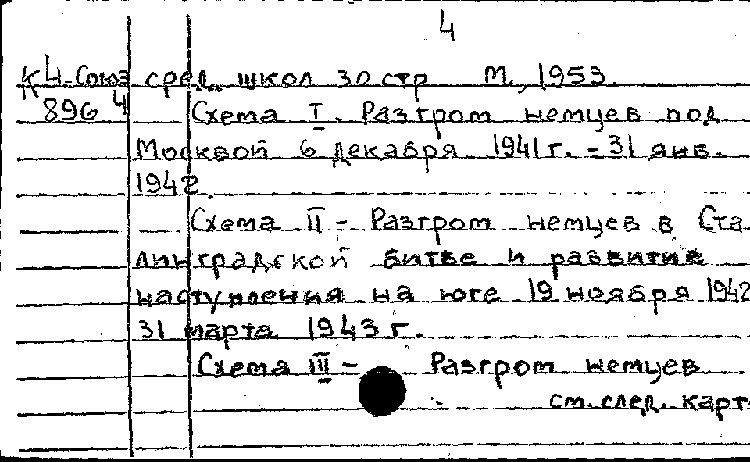 4
К 4-Союз сред. школ 30 стр М., 1953.
896 4 Схема I. Разгром немцев под
Москвой 6 декабря 1941 г. - 31 янв.
1942.
Схема II - Разгром немцев в Ста
линградской битве и развитие
наступления на юге 19 ноября 1942
31 марта 1943 г.
Схема III - Разгром немцев
см. след. карт